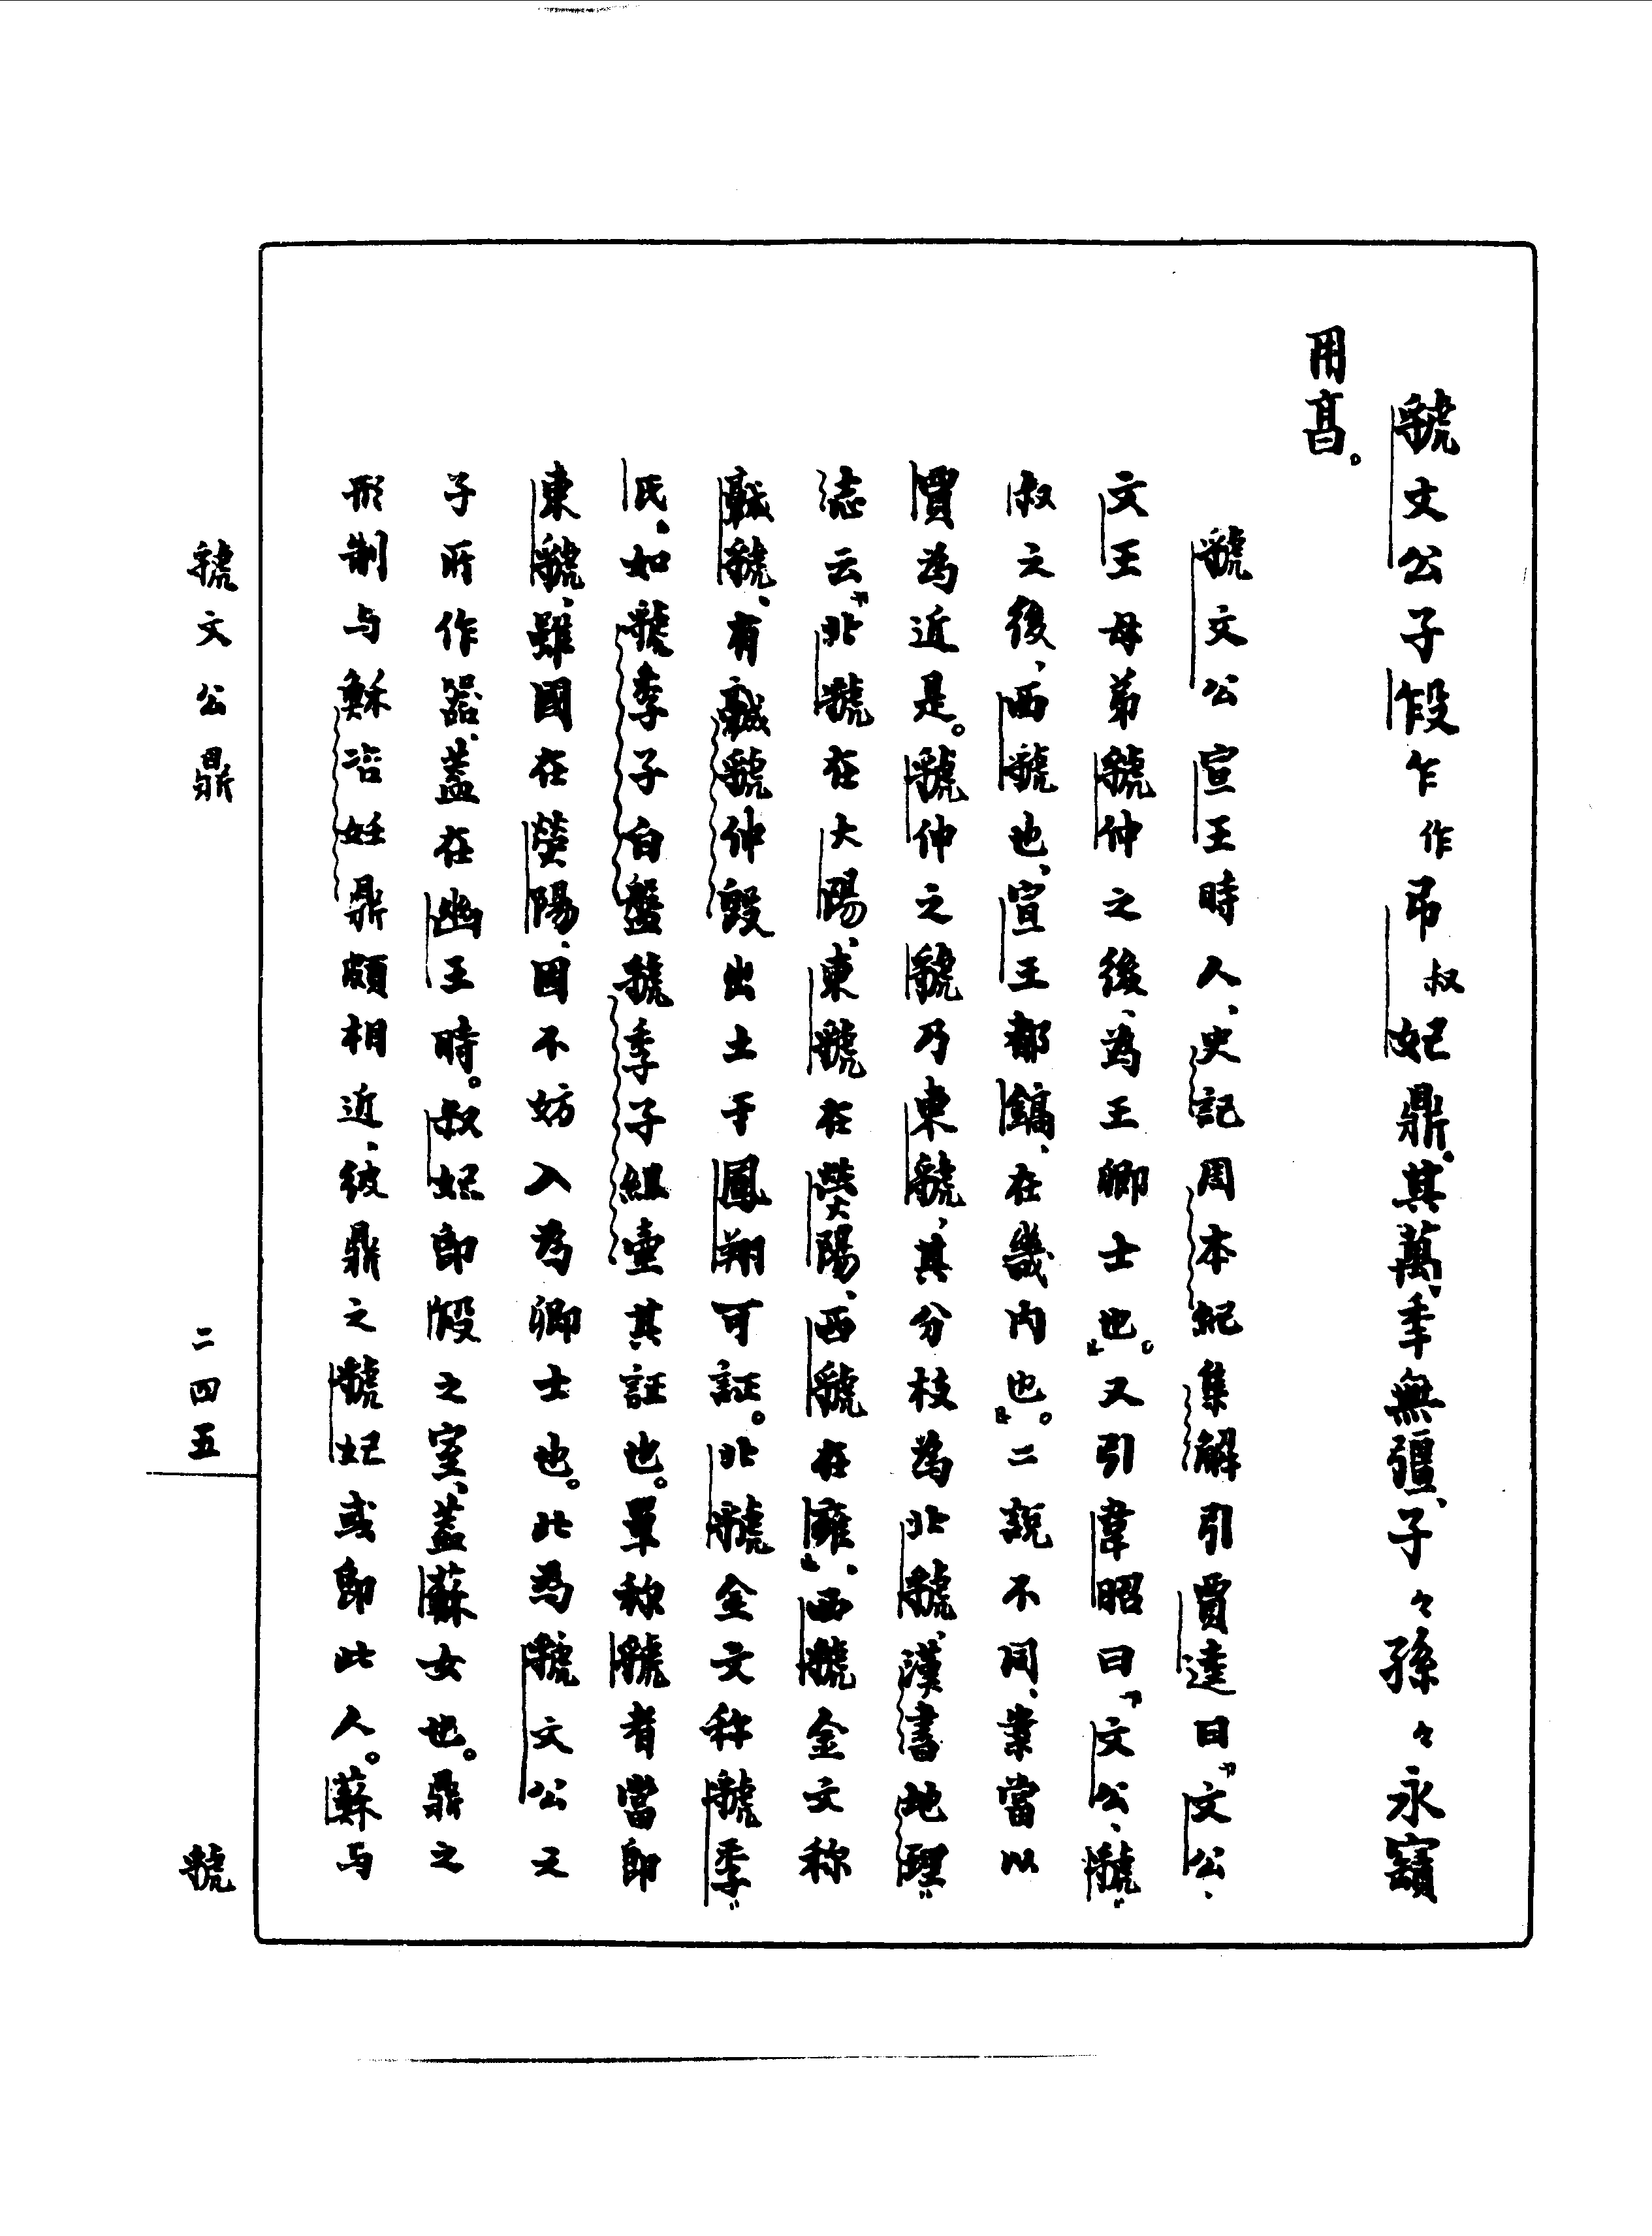 虢文公子𣪕乍作弔叔妃鼎。其萬年無疆、子々孫々永寶
用𩫏。
虢文公宣王時人、史記周本紀集解引賈逵曰『文公、
文王母弟虢仲之後、為王卿士也』。又引韋昭曰『文公、虢
叔之後、西虢也、宣王都鎬、在畿內也』。二說不同、案當以
賈為近是。虢仲之虢乃東虢、其分枝為北虢、漢書地理
志云『北虢在大陽、東虢在熒陽、西虢在雍』、西虢金文称
䵼虢、有䵼虢仲𣪘出土于鳳翔可証。北虢金文称虢季
氏、如虢季子白盤虢季子組壷其証也。單称虢者當即
東虢、雖國在熒陽、因不妨入為卿士也。此為虢文公之
子所作器、蓋在幽王時。叔妃即𣪕之室、蓋蘇女也。鼎之
形制与穌冶妊鼎頗相近、彼鼎之虢妃或即此人。蘇与
虢文公鼎
二四五
虢